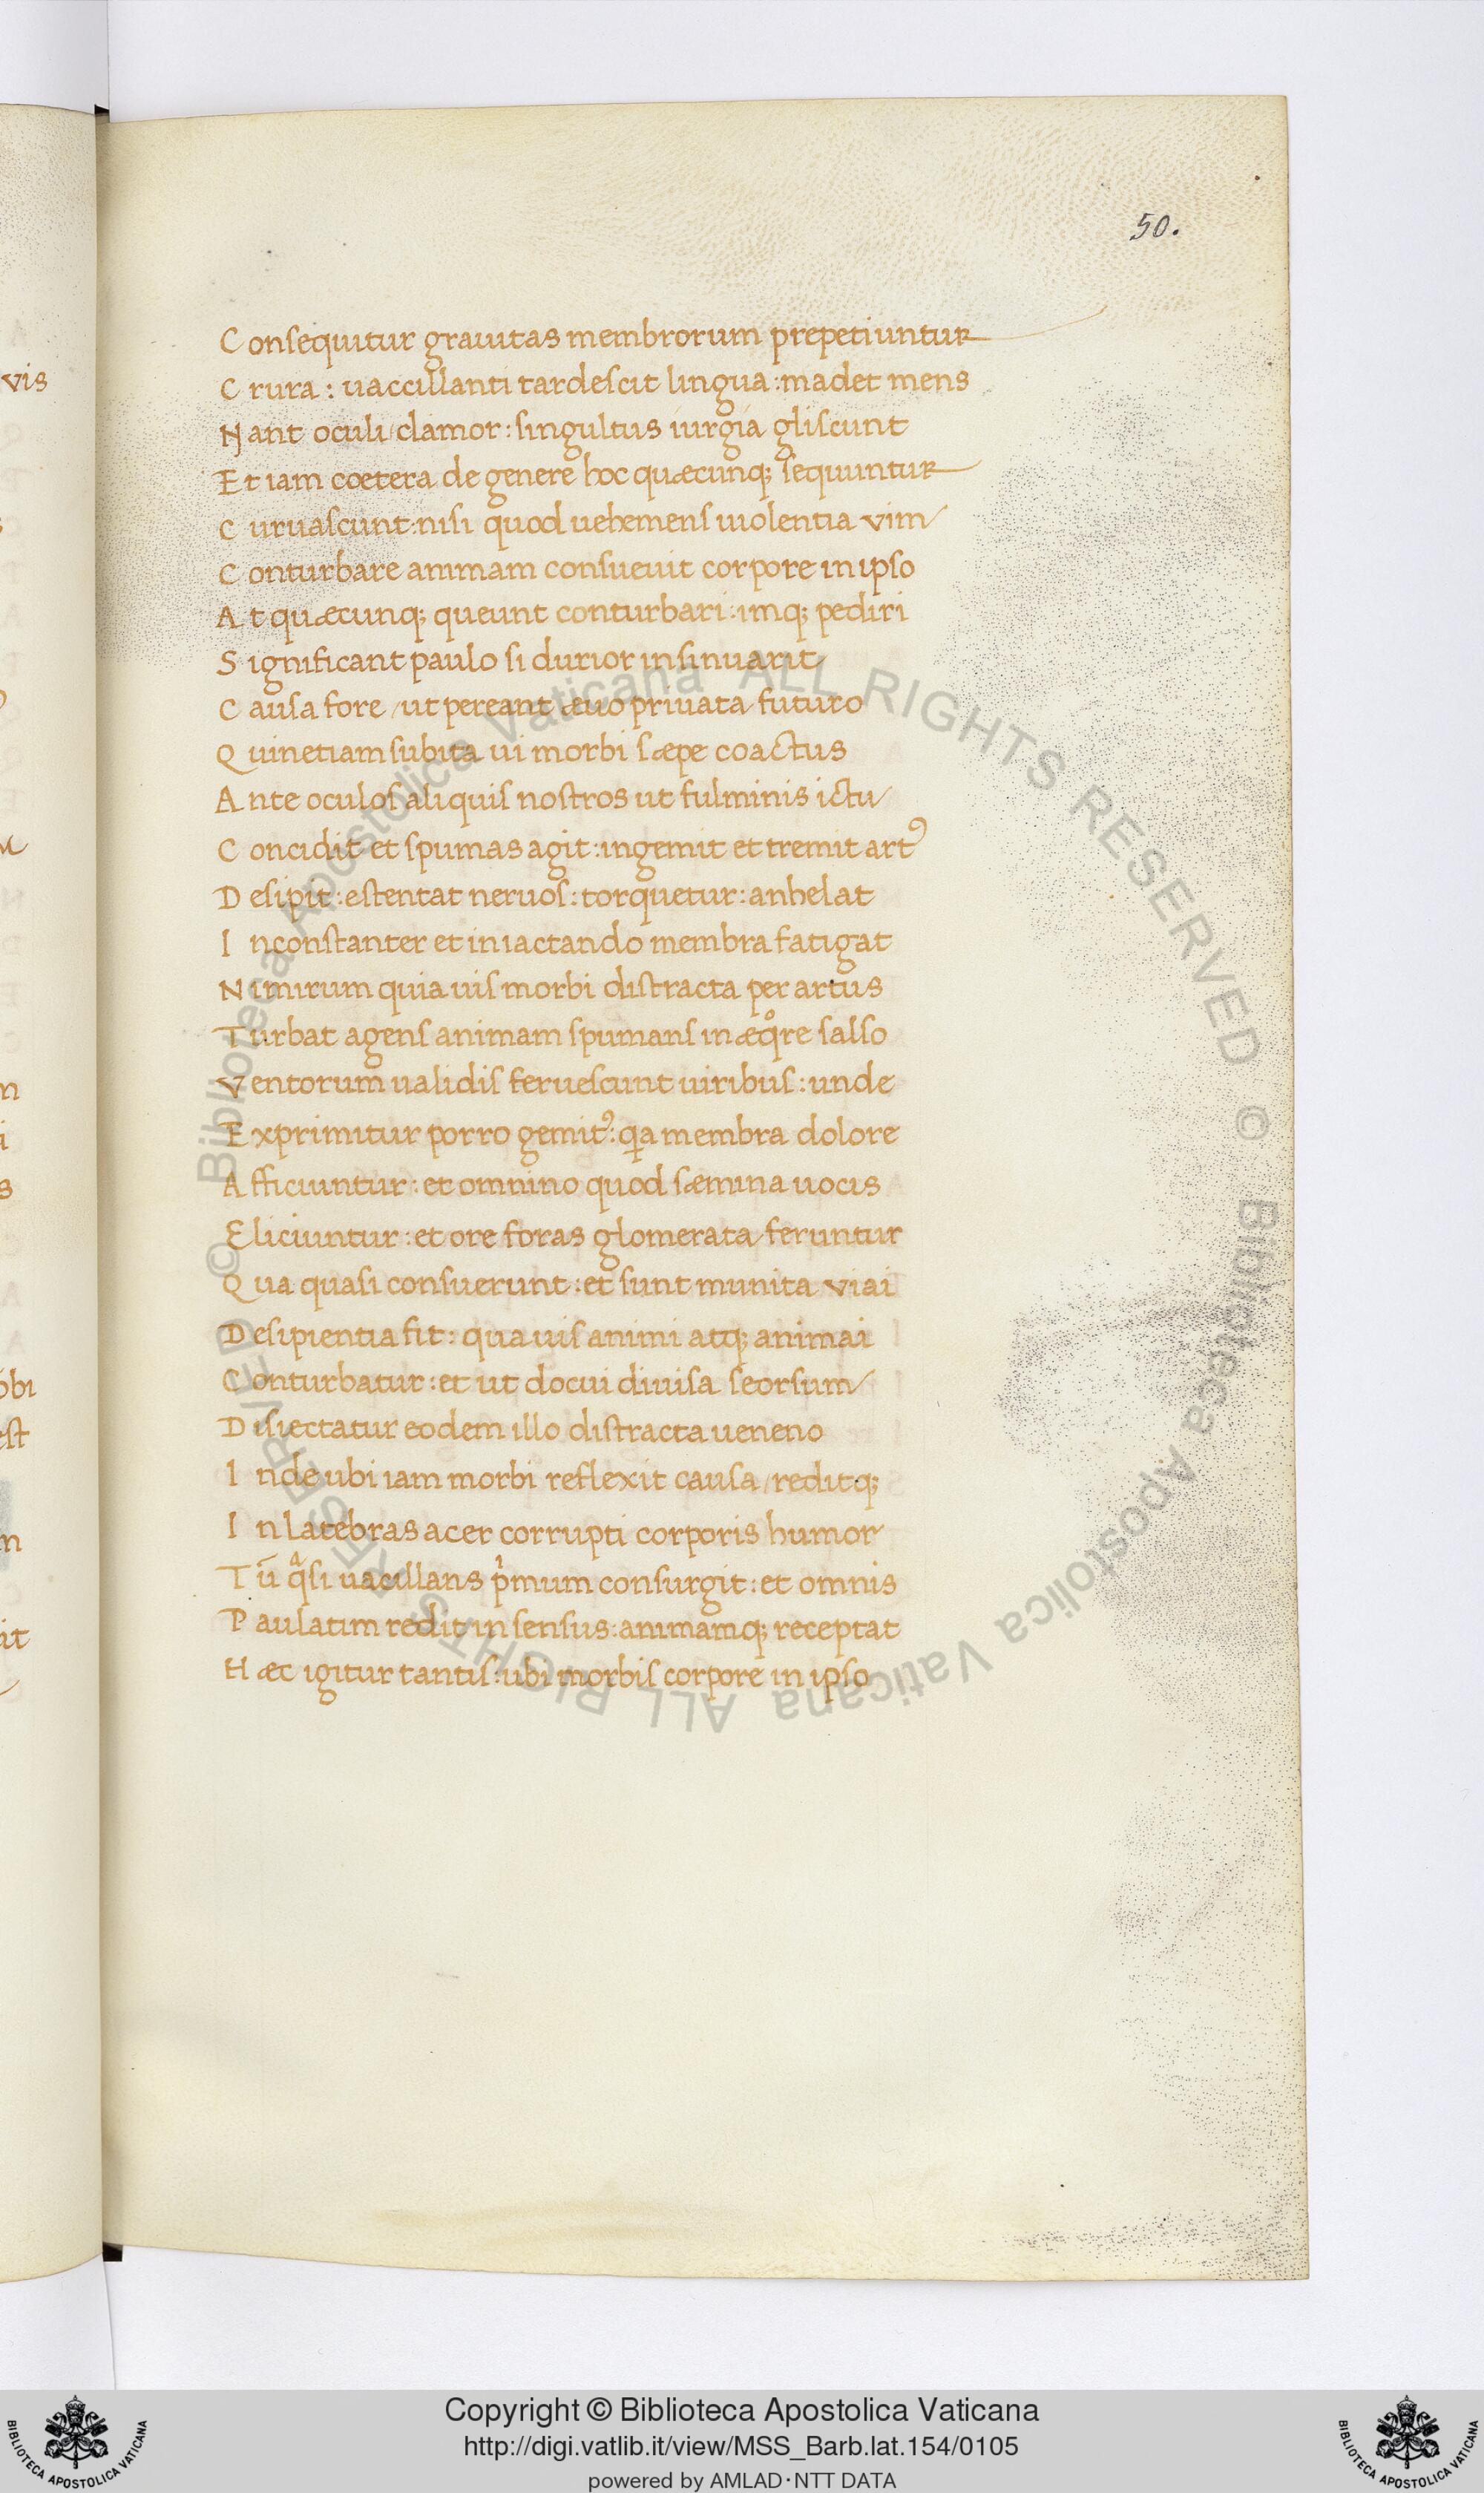 50.
Consequitur grauitas membrorum prepetiuntur
Crura : uaccillanti tardescit lingua : madet mens
Nant oculi / clamor : singultus iurgia gliscunt
Et iam coetera de genere hoc quæcunq; sequuntur
Curuascunt : nisi quod uehemens uiolentia vim
Conturbare animam consueuit corpore in ipso
At quæcunq; queunt conturbari : imq; pediri
Significant paulo si durior insinuarit
Causa fore / ut pereant æuo priuata futuro
Quinetiam subita ui morbi sæpe coactus
Ante oculos aliquis nostros ut fulminis ictu
Concidit et spumas agit : ingemit et tremit artꝰ
Desipit : estentat neruos : torquetur : anhelat
Inconstanter et in iactando membra fatigat
Nimirum quia uis morbi distracta per artus
Turbat agens animam spumans in æqͦre salso
Ventorum ualidis feruescunt uiribus : unde
Exprimitur porro gemitꝰ : qa membra dolore
Afficiuntur : et omnino quod sæmina uocis
Eliciuntur : et ore foras glomerata feruntur
Qua quasi consuerunt : et sunt munita viai
Desipientia fit : qua uis animi atq; animai
Conturbatur : et ut docui diuisa seorsum
Disiectatur eodem illo distracta ueneno
Inde ubi iam morbi reflexit causa / reditq;
In latebras acer corrupti corporis humor
Tū qͣsi uacillans pͥmum consurgit : et omnis
Paulatim redit in sensus : animamq; receptat
Hæc igitur tantis : ubi morbis corpore in ipso
Copyright © Biblioteca Apostolica Vaticana
http://digi.vatlib.it/view/MSS_Barb.lat.154/0105
powered by AMLAD·NTT DATA